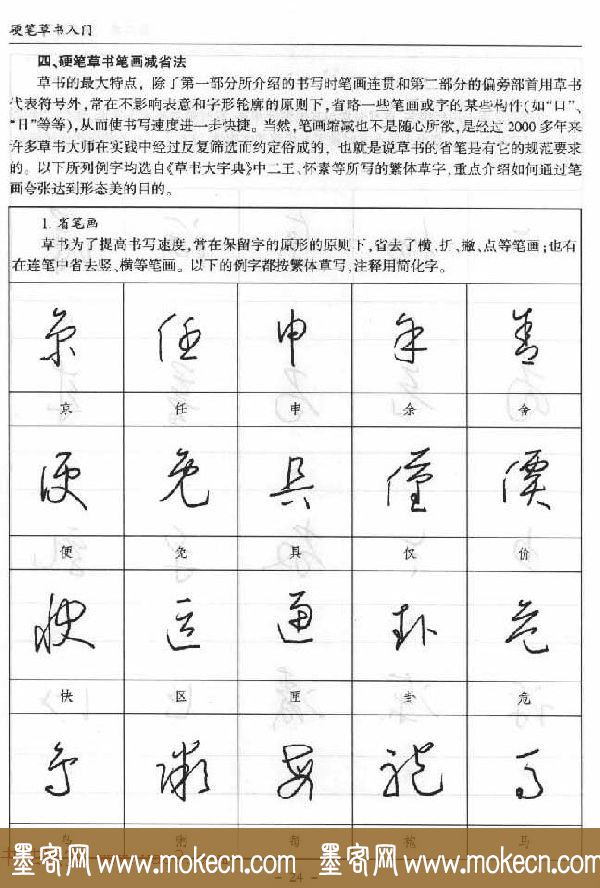 硬笔草书入门
四、硬笔草书笔画减省法
草书的最大特点，除了第一部分所介绍的书写时笔画连贯和第二部分的偏旁部首用草书
代表符号外，常在不影响表意和字形轮廓的原则下，省略一些笔画或字的某些构件(如“口”、
“日”等等)，从而使书写速度进一步快捷。当然，笔画缩减也不是随心所欲，是经过2000多年来
许多草书大师在实践中经过反复筛选而约定俗成的，也就是说草书的省笔是有它的规范要求
的。以下所列例字均选自《草书大字典》中二王、怀素等所写的繁体草字，重点介绍如何通过笔
画夸张达到形态美的目的。
1. 省笔画
草书为了提高书写速度，常在保留字的原形的原则下，省去了横、折、撇、点等笔画；也有
在连笔中省去竖、横等笔画。以下的例字都按繁体草写，注释用简化字。
京 任 申 余 舍
便 免 具 仅 价
快 区 匣 卦 危
马
墨客网 www.mokecn.com 墨客网 www.mokecn.com
- 24 -